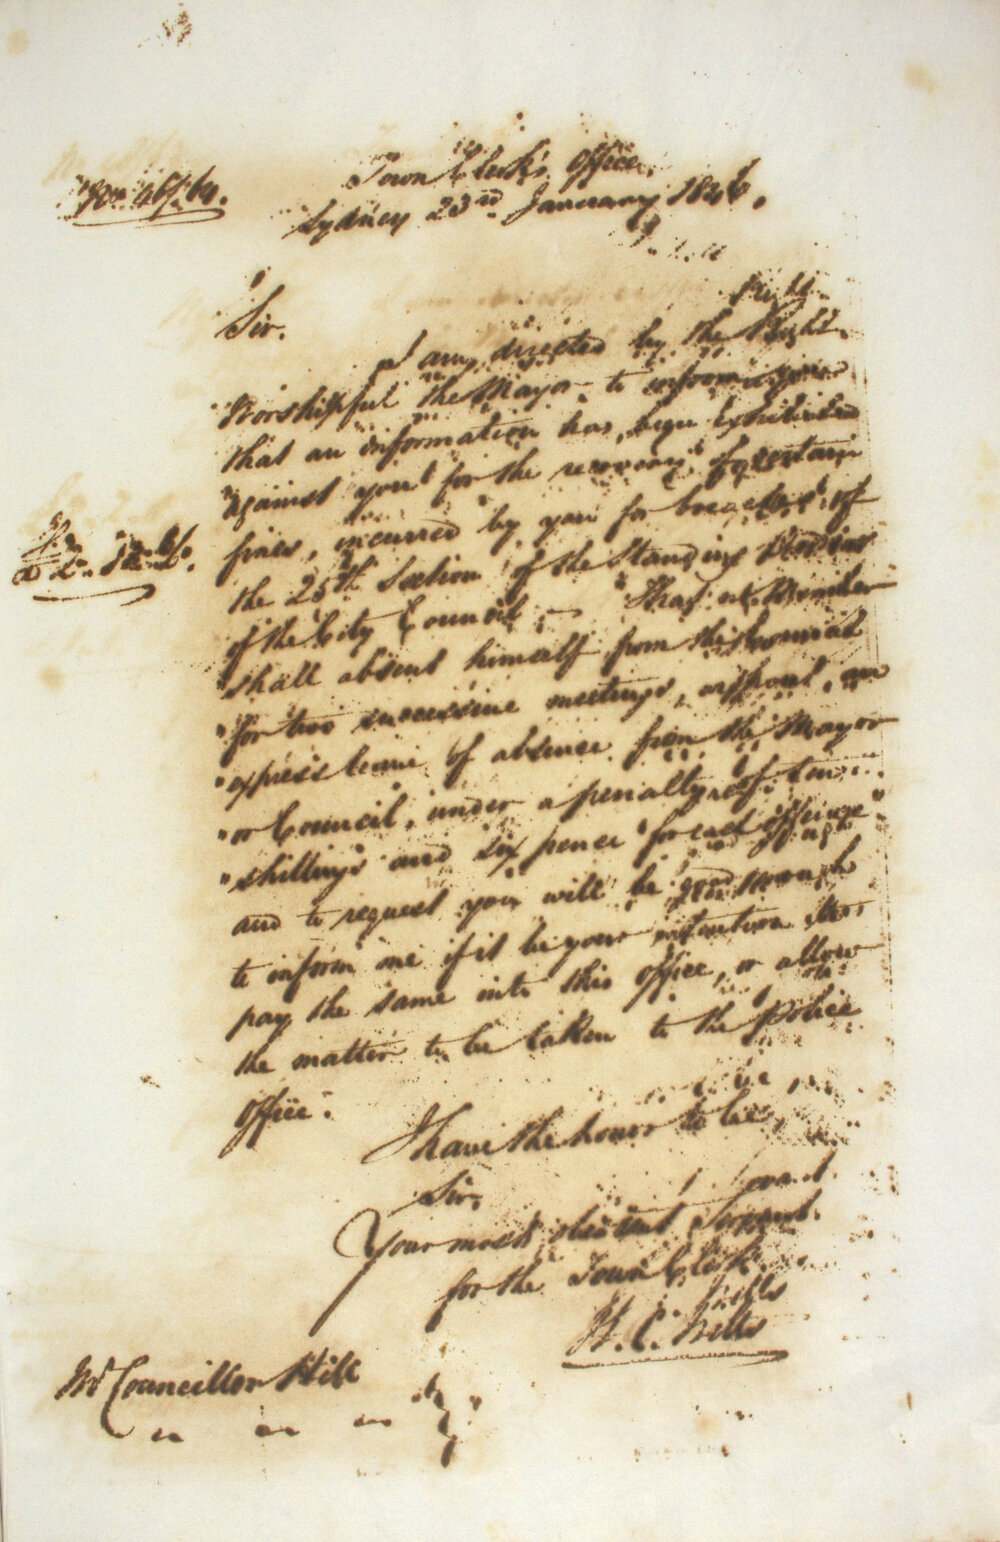 No. 46/64.
Town Clerk's Office
Sydney 23rd January 1846.
Sir.
I am directed by the Right
Worshipful the Mayor to inform you
that an information has been exhibited
against you for the recovery of certain
fines, incurred by you for breaches of
the 25th Section of the Standing Orders
of the City Council. - "That no Member
"shall absent himself from the Council
"for two successive meetings, without an
"express leave of absence from the Mayor
"or Council, under a penalty of ten
"shillings and six pence for each offence"
and to request you will be good enough
to inform me if it be your intention to
pay the same into this office, or allow
the matter to be taken to the Police
Office.
I have the honor to be,
Sir,
Your most obedient Servant.
for the Town Clerk
W. C. Wills
Mr Councillor Hill